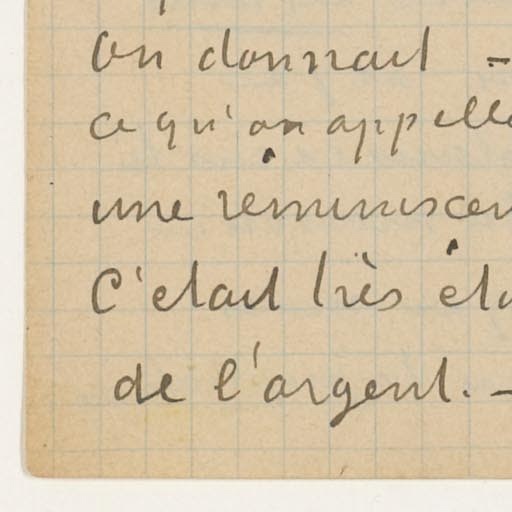 On donnait -
ce qu'on appelle
une réminiscen
C'etait très éta
de l'argent. -